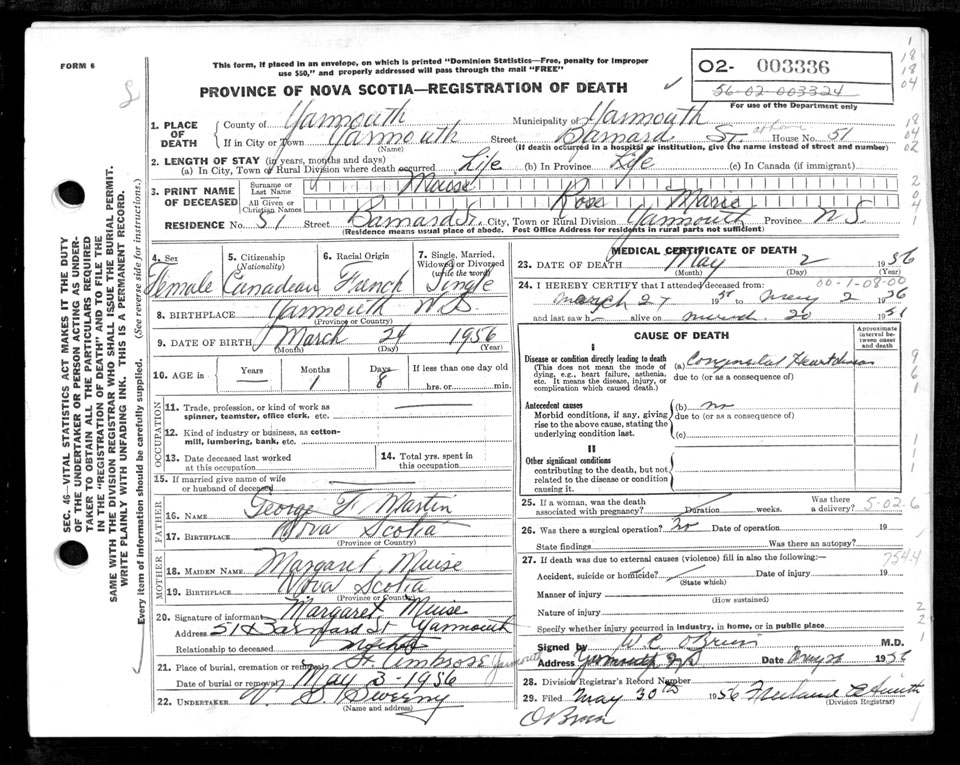 FORM 6
This form, if placed in an envelope, on which is printed "Dominion Statistics—Free, penalty for improper
use $50," and properly addressed will pass through the mail "FREE"
PROVINCE OF NOVA SCOTIA—REGISTRATION OF DEATH
02- 003336
56-02-003324
For use of the Department only
1. PLACE OF DEATH
County of Yarmouth Municipality of Yarmouth
If in City or Town Yarmouth Street Barnard St. at home House No. 51
(Name) (If death occurred in a hospital or institution, give the name instead of street and number)
2. LENGTH OF STAY (in years, months and days)
(a) In City, Town or Rural Division where death occurred Life (b) In Province Life (c) In Canada (if immigrant)
3. PRINT NAME OF DECEASED
Surname or Last Name Muise
All Given or Christian Names Rose Marie
RESIDENCE No. 51 Street Barnard St. City, Town or Rural Division Yarmouth Province N S.
(Residence means usual place of abode. Post Office Address for residents in rural parts not sufficient)
4. Sex Female
5. Citizenship (Nationality) Canadian
6. Racial Origin French
7. Single, Married, Widowed or Divorced (write the word) Single
8. BIRTHPLACE Yarmouth N.S.
(Province or Country)
9. DATE OF BIRTH March 24 1956
(Month) (Day) (Year)
10. AGE in Years — Months 1 Days 8 If less than one day old
hrs. or min.
OCCUPATION
11. Trade, profession, or kind of work as
spinner, teamster, office clerk, etc.
12. Kind of industry or business, as cotton-
mill, lumbering, bank, etc.
13. Date deceased last worked
at this occupation
14. Total yrs. spent in
this occupation
15. If married give name of wife
or husband of deceased
FATHER
16. NAME George F. Martin
17. BIRTHPLACE Nova Scotia
(Province or Country)
MOTHER
18. MAIDEN NAME Margaret Muise
19. BIRTHPLACE Nova Scotia
(Province or Country)
20. Signature of informant Margaret Muise
Address 51 Barnard St Yarmouth
Relationship to deceased Mother
21. Place of burial, cremation or removal St Ambrose Yarmouth
Date of burial or removal May 3-1956
22. UNDERTAKER V. S. Sweeny
(Name and address)
MEDICAL CERTIFICATE OF DEATH
23. DATE OF DEATH May 2 1956
(Month) (Day) (Year)
24. I HEREBY CERTIFY that I attended deceased from: 00-1-08-00
March 27 19 to May 2 1956
and last saw h alive on 20 19
CAUSE OF DEATH
Approximate interval between onset and death
I
Disease or condition directly leading to death
(This does not mean the mode of
dying, e.g., heart failure, asthenia,
etc. It means the disease, injury, or
complication which caused death.)
(a) Congenital Heart disease
due to (or as a consequence of)
Antecedent causes
Morbid conditions, if any, giving
rise to the above cause, stating the
underlying condition last.
(b) no
due to (or as a consequence of)
(c)
II
Other significant conditions
contributing to the death, but not
related to the disease or condition
causing it.
25. If a woman, was the death
associated with pregnancy? Duration weeks. Was there
a delivery? 5-02.6
26. Was there a surgical operation? no Date of operation 19
State findings Was there an autopsy?
27. If death was due to external causes (violence) fill in also the following:— 7544
Accident, suicide or homicide? Date of injury 19
(State which)
Manner of injury
(How sustained)
Nature of injury
Specify whether injury occurred in industry, in home, or in public place
Signed by W.C. O'Brien M.D.
Address Yarmouth N.S Date 1956
28. Division Registrar's Record Number
29. Filed May 30th 1956
(Division Registrar)
SEC. 46—VITAL STATISTICS ACT MAKES IT THE DUTY
OF THE UNDERTAKER OR PERSON ACTING AS UNDER-
TAKER TO OBTAIN ALL THE PARTICULARS REQUIRED
IN THE "REGISTRATION OF DEATH" AND TO FILE THE
SAME WITH THE DIVISION REGISTRAR WHO SHALL ISSUE THE BURIAL PERMIT.
WRITE PLAINLY WITH UNFADING INK. THIS IS A PERMANENT RECORD.
Every item of information should be carefully supplied. (See reverse side for instructions.)